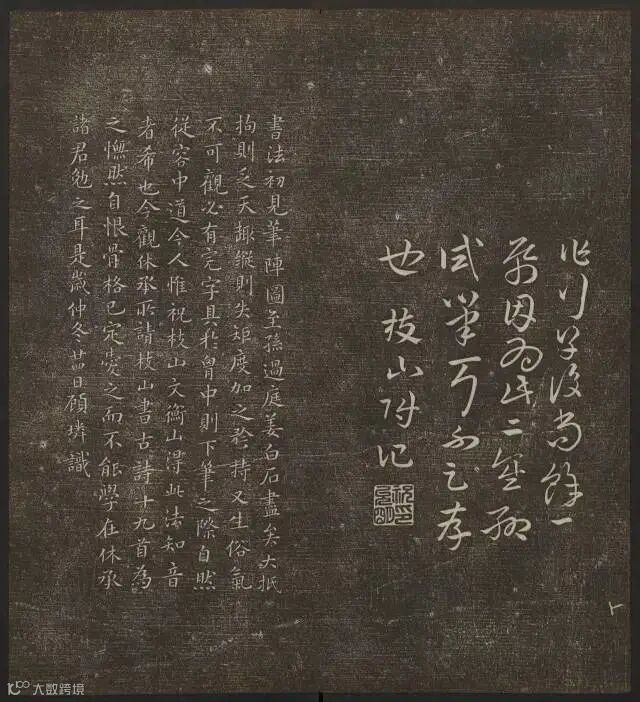 作行草後尚餘一
因為此二聊
試筆耳不足存
也 枝山附记
書法初見筆陣圖至孫過庭姜白石盡矣大抵
拘則乏天趣縱則失矩度加之矜持又生俗氣
不可觀必有完字具於胷中則下筆之際自然
從容中道今人惟祝枝山文衡山得此法知音
者希也今觀休承所請枝山書古詩十九首為
之憮然自恨骨格已定愛之而不能學在休承
諸君勉之耳是歲仲冬日顧璘識
大数跨境